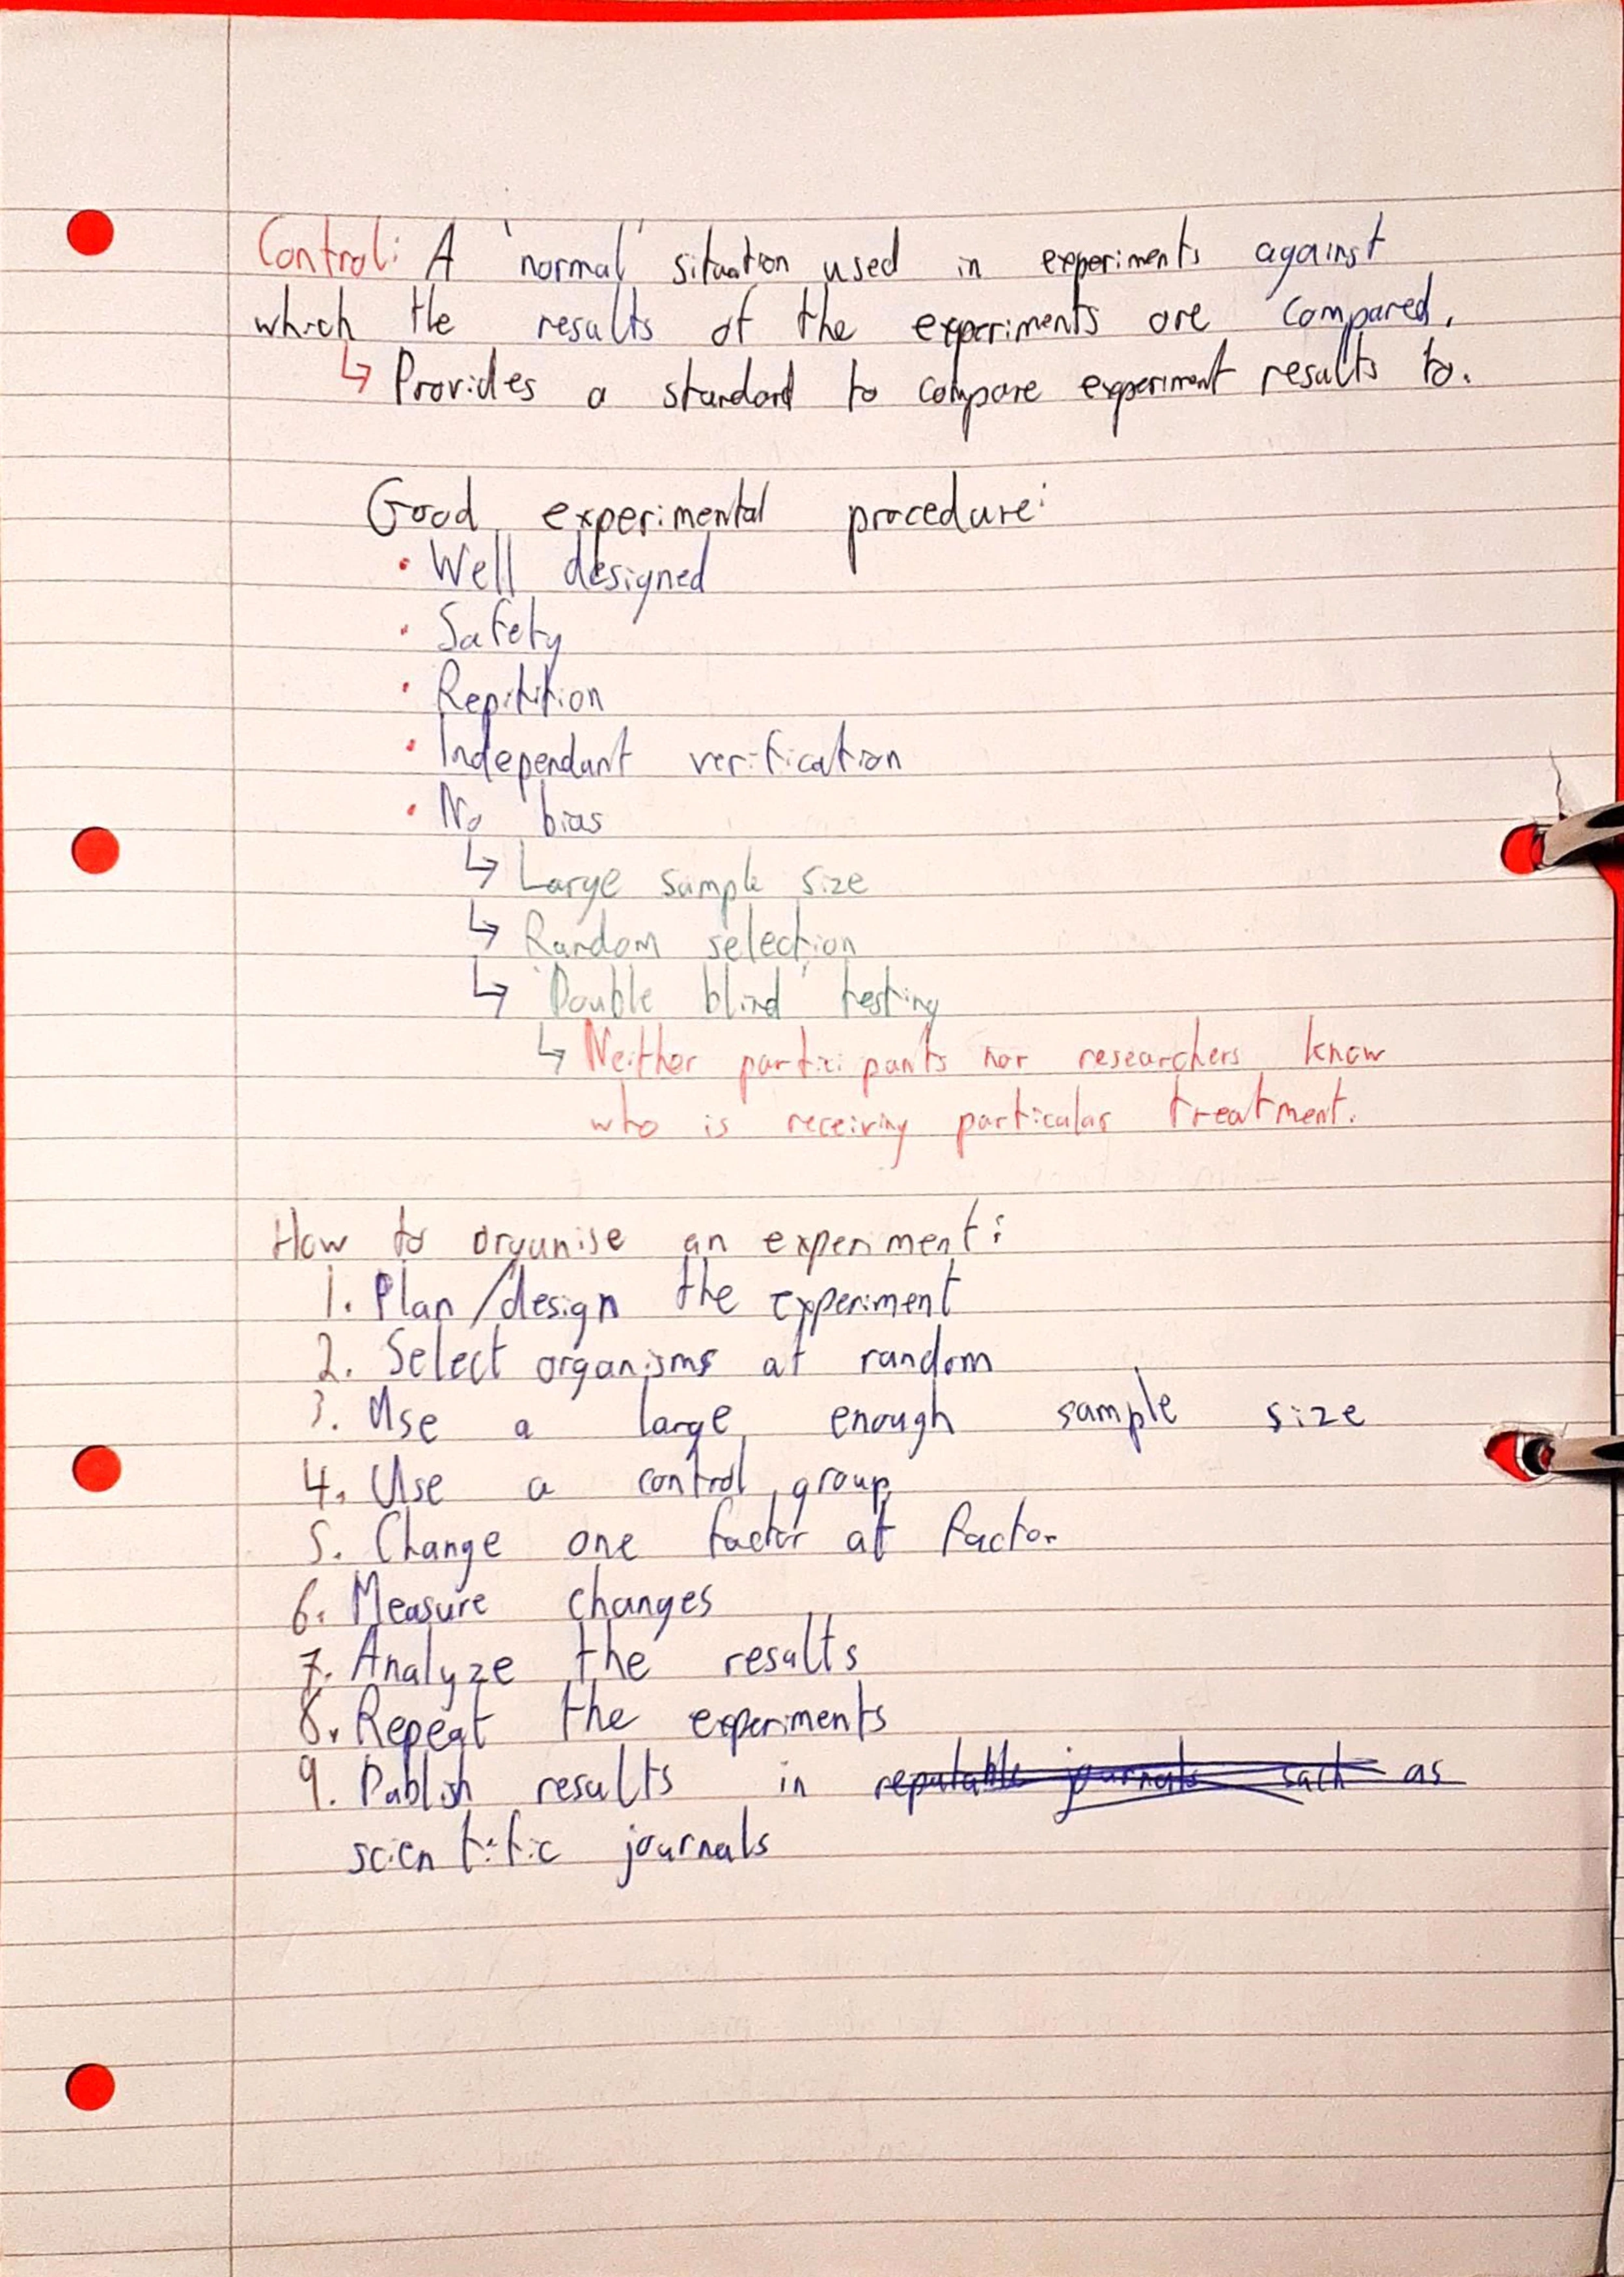 Control: A 'normal' situation used in experiments against
which the results of the experiments are compared.
↳ Provides a standard to compare experiment results to.
Good experimental procedure:
• Well designed
• Safety
• Repitition
• Independant verification
• No bias
↳ Large sample size
↳ Random selection
↳ 'Double blind' testing
↳ Neither participants nor researchers know
who is receiving particular treatment.
How to organise an experiment:
1. Plan/design the experiment
2. Select organisms at random
3. Use a large enough sample size
4. Use a control group
5. Change one factor at factor
6. Measure changes
7. Analyze the results
8. Repeat the experiments
9. Publish results in reputable journals such as
scientific journals